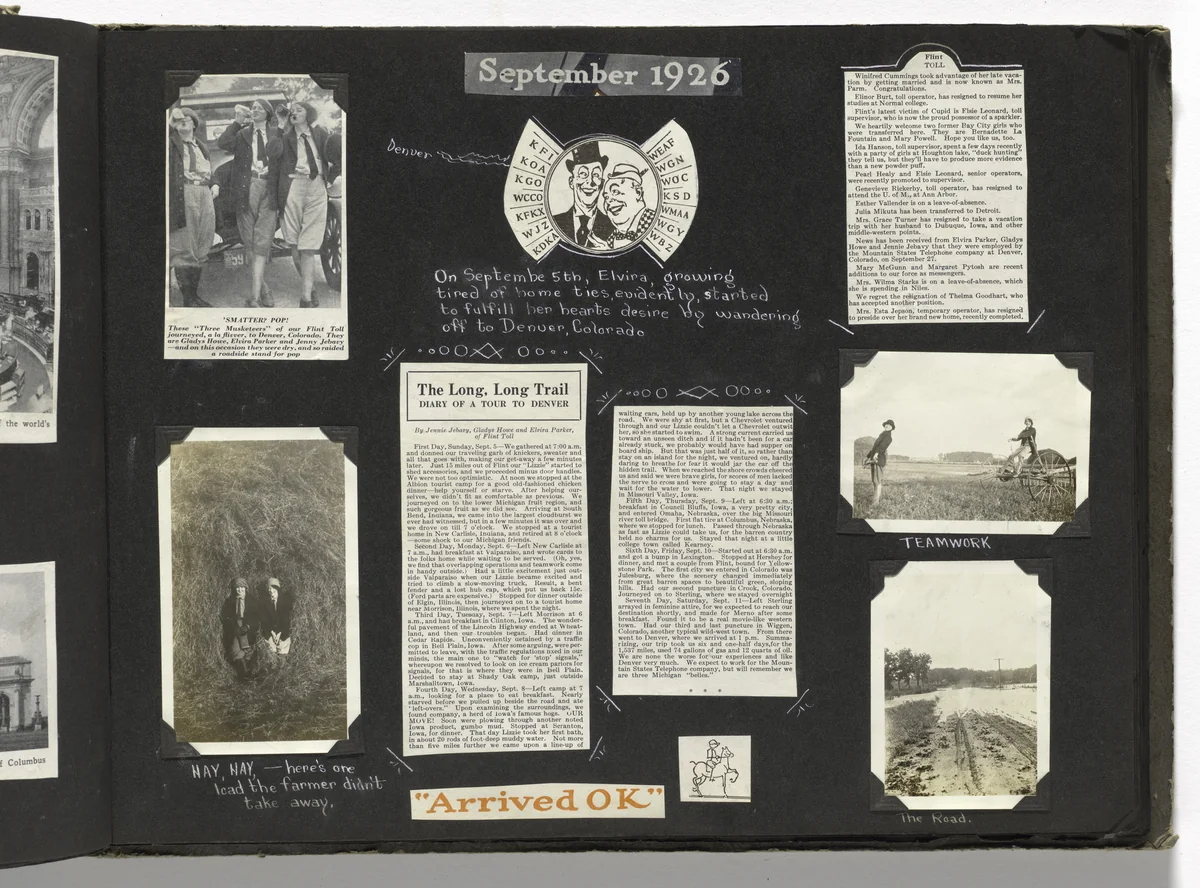 f the world's
f Columbus
September 1926
'SMATTER? POP!
These "Three Musketeers" of our Flint Toll
journeyed, a la flivver, to Denver, Colorado. They
are Gladys Howe, Elvira Parker and Jenny Jebavy
—and on this occasion they were dry, and so raided
a roadside stand for pop
Denver
KFI
KOA
KGO
WCCO
KFKX
WJZ
KDKA
WEAF
WGN
WOC
KSD
WMAA
WGY
WBZ
On Septembe 5th, Elvira, growing
tired of home ties, evidently, started
to fulfill her hearts desire by wandering
off to Denver, Colorado
Flint
TOLL
Winifred Cummings took advantage of her late vaca-
tion by getting married and is now known as Mrs.
Parm. Congratulations.
Elinor Burt, toll operator, has resigned to resume her
studies at Normal college.
Flint's latest victim of Cupid is Elsie Leonard, toll
supervisor, who is now the proud possessor of a sparkler.
We heartily welcome two former Bay City girls who
were transferred here. They are Bernadette La
Fountain and Mary Powell. Hope you like us, too.
Ida Hanson, toll supervisor, spent a few days recently
with a party of girls at Houghton lake, "duck hunting"
they tell us, but they'll have to produce more evidence
than a new powder puff.
Pearl Healy and Elsie Leonard, senior operators,
were recently promoted to supervisor.
Genevieve Rickerby, toll operator, has resigned to
attend the U. of M., at Ann Arbor.
Esther Vallender is on a leave-of-absence.
Julia Mikuta has been transferred to Detroit.
Mrs. Grace Turner has resigned to take a vacation
trip with her husband to Dubuque, Iowa, and other
middle-western points.
News has been received from Elvira Parker, Gladys
Howe and Jennie Jebavy that they were employed by
the Mountain States Telephone company at Denver,
Colorado, on September 27.
Mary McGunn and Margaret Pytosh are recent
additions to our force as messengers.
Mrs. Wilma Starks is on a leave-of-absence, which
she is spending in Niles.
We regret the resignation of Thelma Goodhart, who
has accepted another position.
Mrs. Esta Jepson, temporary operator, has resigned
to preside over her brand new home, recently completed.
The Long, Long Trail
DIARY OF A TOUR TO DENVER
By Jennie Jebavy, Gladys Howe and Elvira Parker,
of Flint Toll
First Day, Sunday, Sept. 5—We gathered at 7:00 a.m.
and donned our traveling garb of knickers, sweater and
all that goes with, making our get-away a few minutes
later. Just 15 miles out of Flint our "Lizzie" started to
shed accessories, and we proceeded minus door handles.
We were not too optimistic. At noon we stopped at the
Albion tourist camp for a good old-fashioned chicken
dinner—help yourself or starve. After helping our-
selves, we didn't fit as comfortable as previous. We
journeyed on to the lower Michigan fruit region, and
such gorgeous fruit as we did see. Arriving at South
Bend, Indiana, we came into the largest cloudburst we
ever had witnessed, but in a few minutes it was over and
we drove on till 7 o'clock. We stopped at a tourist
home in New Carlisle, Indiana, and retired at 8 o'clock
—some shock to our Michigan friends.
Second Day, Monday, Sept. 6—Left New Carlisle at
7 a.m., had breakfast at Valparaiso, and wrote cards to
the folks home while waiting to be served. (Oh, yes,
we find that overlapping operations and teamwork come
in handy outside.) Had a little excitement just out-
side Valparaiso when our Lizzie became excited and
tried to climb a slow-moving truck. Result, a bent
fender and a lost hub cap, which put us back 15c.
(Ford parts are expensive.) Stopped for dinner outside
of Elgin, Illinois, then journeyed on to a tourist home
near Morrison, Illinois, where we spent the night.
Third Day, Tuesday, Sept. 7—Left Morrison at 6
a.m., and had breakfast in Clinton, Iowa. The wonder-
ful pavement of the Lincoln Highway ended at Wheat-
land, and then our troubles began. Had dinner in
Cedar Rapids. Unconveniently detained by a traffic
cop in Bell Plain, Iowa. After some arguing, were per-
mitted to leave, with the traffic regulations fixed in our
minds, the main one to "watch for 'stop' signals,"
whereupon we resolved to look on ice cream parlors for
signals, for that is where they are in Bell Plain.
Decided to stay at Shady Oak camp, just outside
Marshalltown, Iowa.
Fourth Day, Wednesday, Sept. 8—Left camp at 7
a.m., looking for a place to eat breakfast. Nearly
starved before we pulled up beside the road and ate
"left-overs." Upon examining the surroundings, we
found company, a herd of Iowa's famous hogs. OUR
MOVE! Soon were plowing through another noted
Iowa product, gumbo mud. Stopped at Scranton,
Iowa, for dinner. That day Lizzie took her first bath,
in about 20 rods of foot-deep muddy water. Not more
than five miles further we came upon a line-up of
waiting cars, held up by another young lake across the
road. We were shy at first, but a Chevrolet ventured
through and our Lizzie couldn't let a Chevrolet outwit
her, so she started to swim. A strong current carried us
toward an unseen ditch and if it hadn't been for a car
already stuck, we probably would have had supper on
board ship. But that was just half of it, so rather than
stay on an island for the night, we ventured on, hardly
daring to breathe for fear it would jar the car off the
hidden trail. When we reached the shore crowds cheered
us and said we were brave girls, for scores of men lacked
the nerve to cross and were going to stay a day and
wait for the water to lower. That night we stayed
in Missouri Valley, Iowa.
Fifth Day, Thursday, Sept. 9—Left at 6:30 a.m.;
breakfast in Council Bluffs, Iowa, a very pretty city,
and entered Omaha, Nebraska, over the big Missouri
river toll bridge. First flat tire at Columbus, Nebraska,
where we stopped for lunch. Passed through Nebraska
as fast as Lizzie could take us, for the barren country
held no charms for us. Stayed that night at a little
college town called Kearney.
Sixth Day, Friday, Sept. 10—Started out at 6:30 a.m.
and got a bump in Lexington. Stopped at Hershey for
dinner, and met a couple from Flint, bound for Yellow-
stone Park. The first city we entered in Colorado was
Julesburg, where the scenery changed immediately
from great barren spaces to beautiful green, sloping
hills. Had our second puncture in Crook, Colorado.
Journeyed on to Sterling, where we stayed overnight
Seventh Day, Saturday, Sept. 11—Left Sterling
arrayed in feminine attire, for we expected to reach our
destination shortly, and made for Merno after some
breakfast. Found it to be a real movie-like western
town. Had our third and last puncture in Wiggen,
Colorado, another typical wild-west town. From there
went to Denver, where we arrived at 1 p.m. Summa-
rizing, our trip took us six and one-half days, for the
1,537 miles, used 74 gallons of gas and 12 quarts of oil.
We are none the worse for our experiences and like
Denver very much. We expect to work for the Moun-
tain States Telephone company, but will remember we
are three Michigan "belles."
* * *
TEAMWORK
HAY, HAY, — here's one
load the farmer didn't
take away.
"Arrived OK"
The Road.